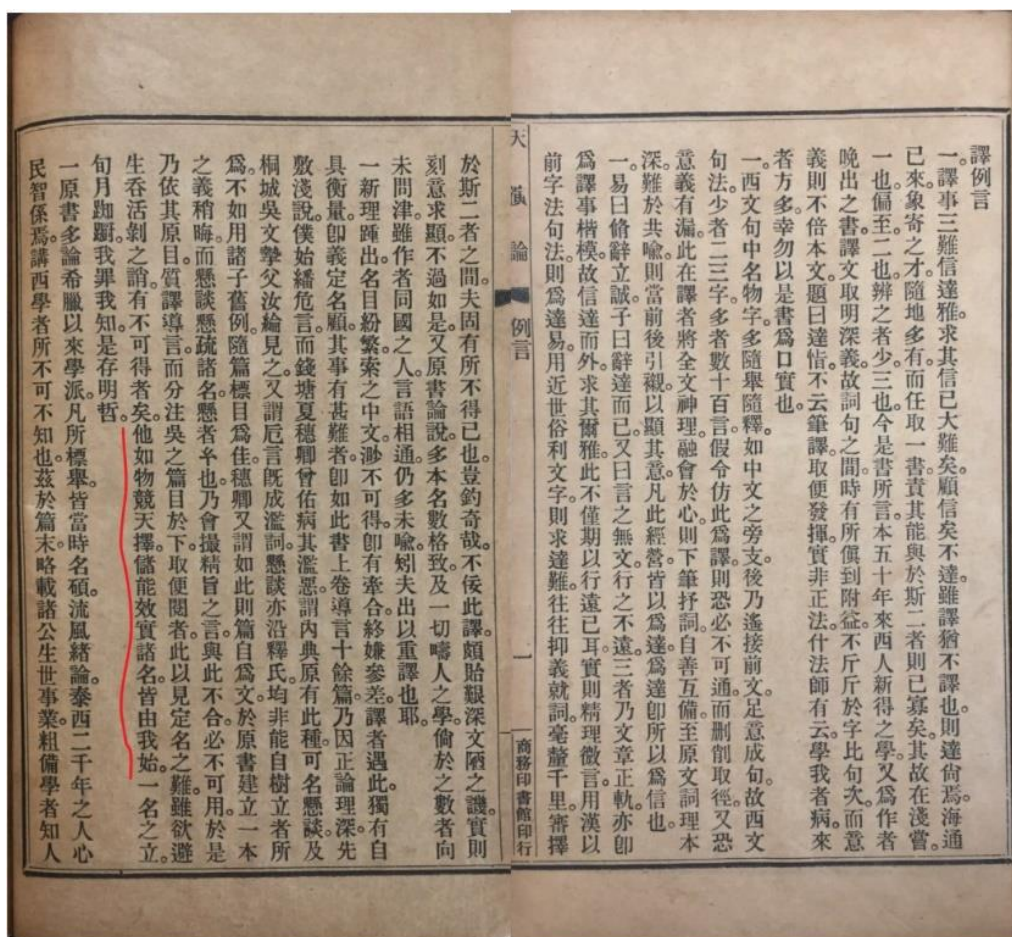 譯例言
一。譯事三難信達雅。求其信已大難矣。顧信矣不達。雖譯猶不譯也。則達尙焉。海通
已來。象寄之才。隨地多有。而任取一書。責其能與於斯二者則已寡矣。其故在淺嘗。
一也。偏至二也。辨之者少三也。今是書所言。本五十年來西人新得之學。又爲作者
晚出之書。譯文取明深義。故詞句之間。時有所傎到附益。不斤斤於字比句次。而意
義則不倍本文。題曰達恉。不云筆譯。取便發揮。實非正法。什法師有云。學我者病。來
者方多。幸勿以是書爲口實也。
一。西文句中名物字。多隨舉隨釋。如中文之旁支。後乃遙接前文。足意成句。故西文
句法。少者二三字。多者數十百言。假令仿此爲譯。則恐必不可通。而刪削取徑。又恐
意義有漏。此在譯者將全文神理融會於心。則下筆抒詞。自善互備。至原文詞理本
深。難於共喻。則當前後引襯。以顯其意。凡此經營。皆以爲達。爲達卽所以爲信也。
一。易曰脩辭立誠。子曰辭達而已。又曰言之無文。行之不遠。三者乃文章正軌。亦卽
爲譯事楷模。故信達而外。求其爾雅。此不僅期以行遠已耳。實則精理微言。用漢以
前字法句法。則爲達易。用近世俗利文字。則求達難。往往抑義就詞。毫釐千里。審擇
天演論 例言 一 商務印書館印行
於斯二者之間。夫固有所不得已也。豈釣奇哉。不佞此譯。頗貽艱深文陋之譏。實則
刻意求顯。不過如是。又原書論說。多本名數格致。及一切疇人之學。倘於之數者向
未問津。雖作者同國之人。言語相通。仍多未喻。矧夫出以重譯也耶。
一新理踵出。名目紛繁。索之中文。渺不可得。卽有牽合。終嫌參差。譯者遇此。獨有自
具衡量。卽義定名。顧其事有甚難者。卽如此書上卷導言十餘篇。乃因正論理深。先
敷淺說。僕始繙卮言。而錢塘夏穗卿曾佑病其濫惡。謂內典原有此種。可名懸談。及
桐城吳文摯父汝綸見之。又謂卮言旣成濫詞。懸談亦沿釋氏。均非能自樹立者所
爲。不如用諸子舊例。隨篇標目爲佳。穗卿又謂如此則篇自爲文。於原書建立一本
之義稍晦。而懸談懸疏諸名。懸者半也。乃會撮精旨之言。與此不合。必不可用。於是
乃依其原目。質譯導言。而分注吳之篇目於下。取便閱者。此以見定名之難。雖欲避
生呑活剝之誚。有不可得者矣。他如物競天擇儲能效實諸名。皆由我始。一名之立。
旬月踟躕。我罪我知。是存明哲。
一原書多論希臘以來學派。凡所標舉。皆當時名碩。流風緒論。泰西二千年之人心
民智係焉。講西學者所不可不知也。茲於篇末。略載諸公生世事業。粗備學者知人